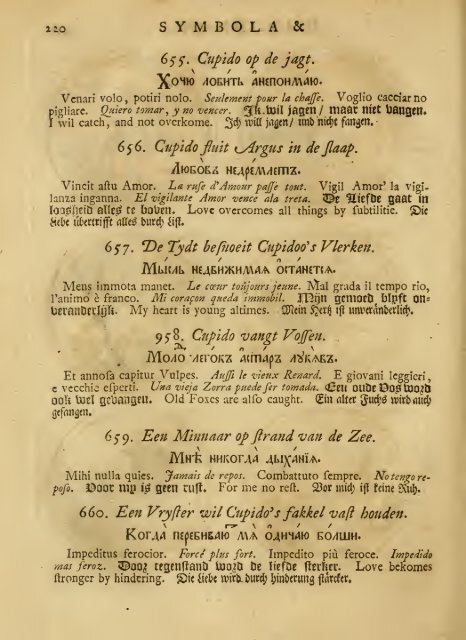 220 SYMBOLA &
655. Cupido op de jagt.
Хочю ловить анепоимаю.
Venari volo, potiri nolo. Seulement pour la chaſſe. Voglio cacciar no
pigliare. Quiero tomar, y no vencer. Ik wil jagen/ maar niet vangen.
I wil catch, and not overkome. Ich will jagen/ und nicht fangen.
656. Cupido ſluit Argus in de ſlaap.
Любовъ недремлетъ.
Vincit aſtu Amor. La ruſe d'Amour paſſe tout. Vigil Amor' la vigi-
lanza inganna. El vigilante Amor vence ala treta. De Liefde gaat in
looſheid alles te boven. Love overcomes all things by ſubtilitie. Die
Liebe übertrifft alles durch Liſt.
657. De Tydt beſnoeit Cupidoo's Vlerken.
Мысль недвижимая ѡстанетїя.
Mens immota manet. Le cœur toûjours jeune. Mal grada il tempo rio,
l'animo è franco. Mi coraçon queda immobil. Mijn gemoed blyft on-
veranderlijk. My heart is young altimes. Mein Hertz iſt unveränderlich.
958. Cupido vangt Voſſen.
Моло легокъ астаръ лукавъ.
Et annoſa capitur Vulpes. Auſſi le vieux Renard. E giovani leggieri,
e vecchie eſperti. Una vieja Zorra puede ſer tomada. Een oude Vos word
ook wel gevangen. Old Foxes are alſo caught. Ein alter Fuchs wird auch
gefangen.
659. Een Minnaar op ſtrand van de Zee.
Мнѣ никогда дыханїя.
Mihi nulla quies. Jamais de repos. Combattuto ſempre. No tengo re-
poſo. Voor my is geen ruſt. For me no reſt. Vor mich iſt keine Ruh.
660. Een Vryſter wil Cupido's fakkel vaſt houden.
Когда перебиваю мя ѡдичаю болши.
Impeditus ferocior. Forcé plus fort. Impedito più feroce. Impedido
mas feroz. Door tegenſtand word de liefde ſterker. Love bekomes
ſtronger by hindering. Die Liebe wird durch hinderung ſtärcker.